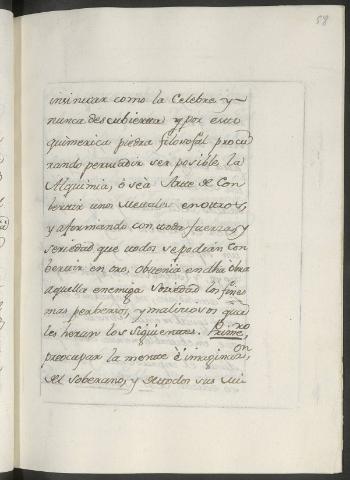 58
insinuar como la Celebre y
nunca descubierta y por esso
quimerica piedra filosofal procu
rando persuadir ser posible la
Alquimia, ò sèa Arte de Con
bertir unos Metales en otros,
y afirmando con todas fuerzas y
seriedad que todos se podian con
bertir en oro, obtenia en dha obra
aquella enemiga Sociedad los fines
mas perbersos, y maliciosos quâ
les heran los siguientes. Primero
preocupar la mente è imaginon,
del soberano, y de todos sus Mi